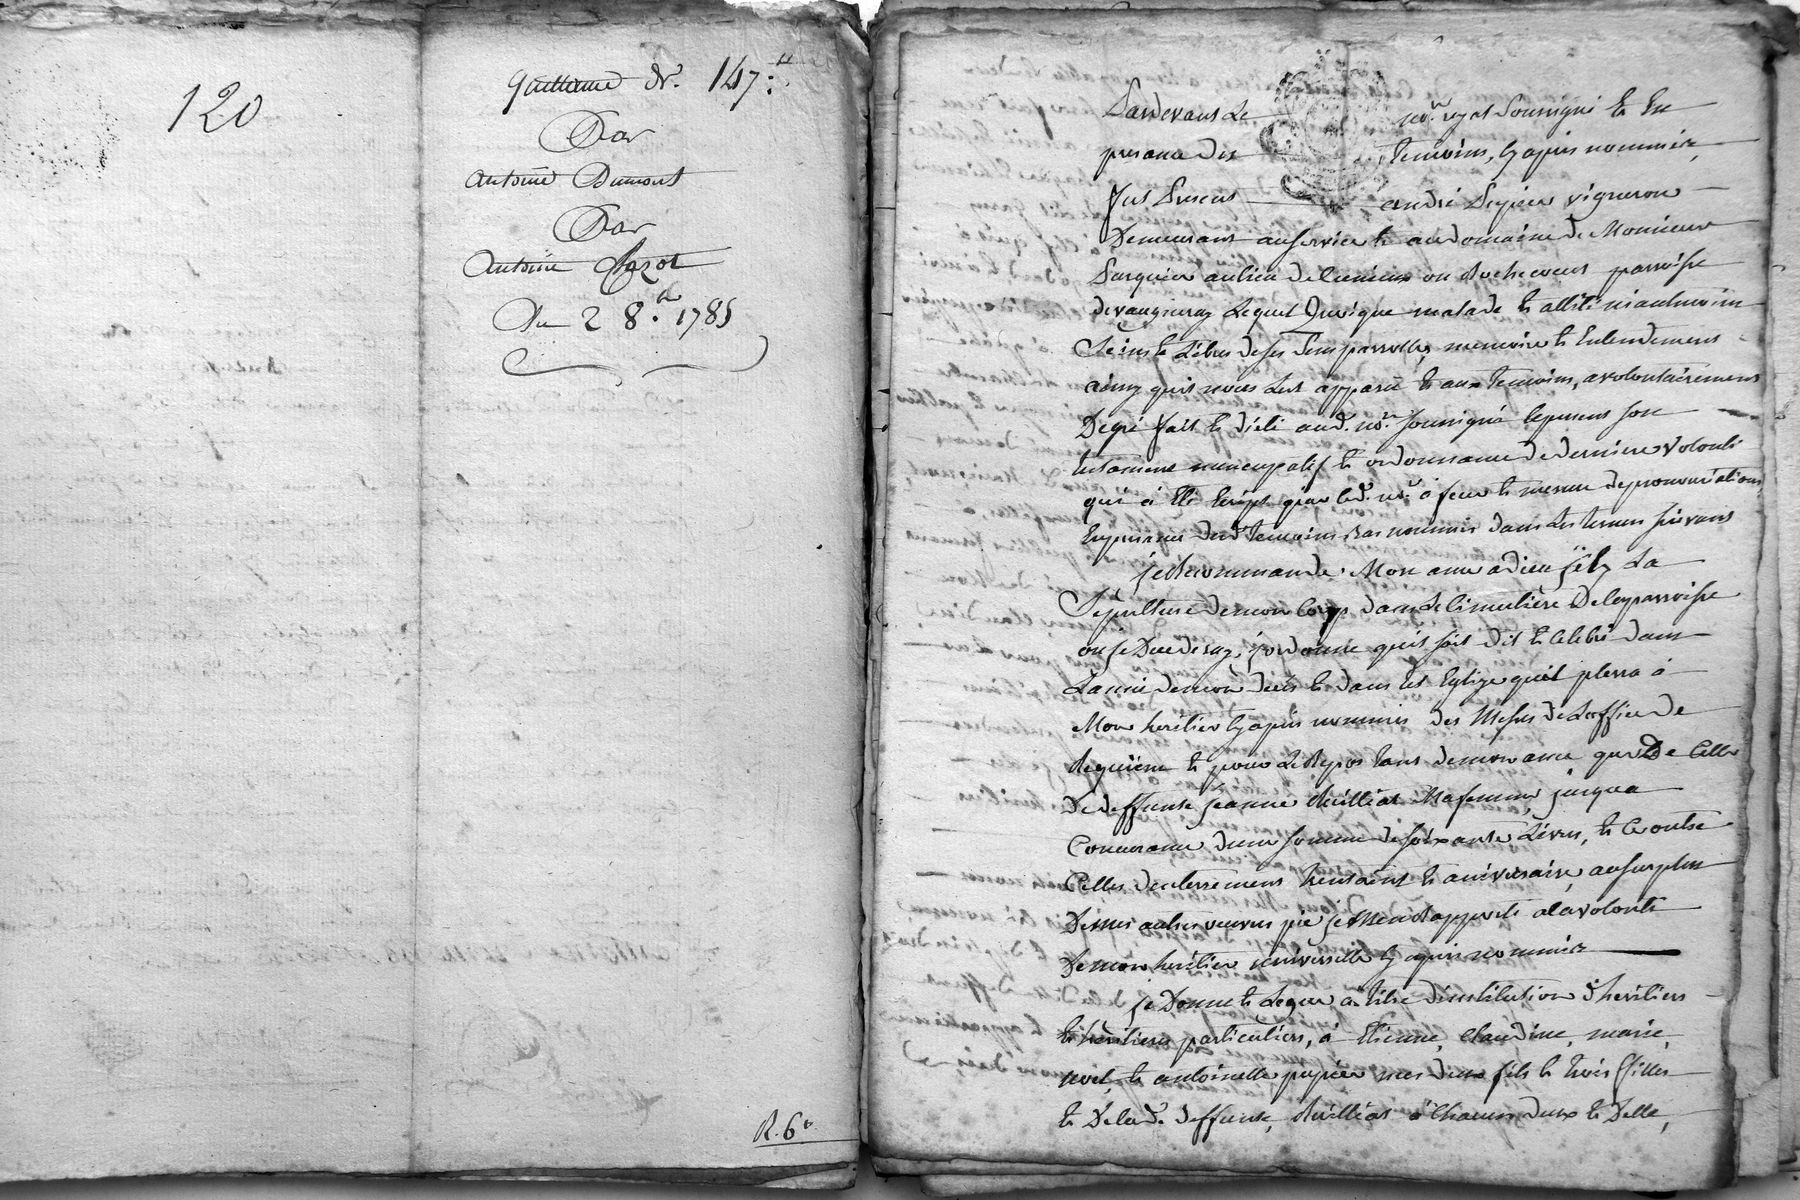 120
quittance de 147:
Par
Antoine Dumont
Par
Antoine Chazot
Du 2 8.bre 1785
R. 6
Pardevant Le no.re royal soussigné et En
presence des temoins, cy apres nommés
fut Present andré pupier vigneron
Demeurant au service et au domaine de Monsieur
au lieu de ou parroisse
de vaugneray Lequel quoique malade et allité niantmoins
sein et Libre de ses sens parrolle, memoire et Entendement
ainsy quil nous Est apparu et aux temoins, a volontairement
De gré fait et dicté aud. no.re soussigné le present son
testament nuncupatif et ordonnance de derniere volonté
qui a Eté Ecript par led. no.re a feur et mesure de prononciation
En presence desd. temoins bas nommés dans Les termes suivans
je Recommande Mon ame a dieu, j'élis La
Sepulture de mon Corps dans Le Cimetière De la parroisse
ou je Decederay, j'ordonne qu'il soit dit et Celebré dans
L'année de mon decès et dans tel Eglise qu'il plerra a
Mon heritier cy apres nommé des Messes de L'office de
Requiem et pour Le Repos tant de mon ame que De Celle
De deffunte jeanne Rulliat Ma femme, jusqua
Concurance d'une somme de soixante Livres, et ce outre
Celles d'enterrement trentain et aniversaire, au surplus
De mes autres œuvres pie je M'en Rapporte a la volonté
De mon heritier universelle cy apres nommé
je Donne et Legue a titre d'institution d'heritiers
et heritieres particuliers, à Etienne, Claudine, marie,
et antoinette pupier mes deux fils et trois filles
et De lad. deffunte, Rulliat a Chacun d'eux et D'elle,